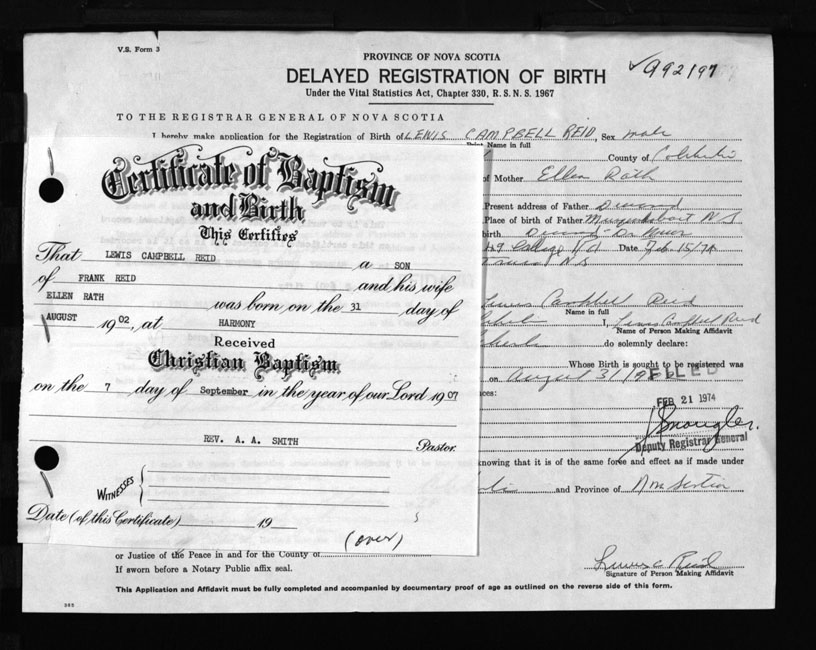 V.S. Form 3
PROVINCE OF NOVA SCOTIA
DELAYED REGISTRATION OF BIRTH
992197
Under the Vital Statistics Act, Chapter 330, R.S.N.S. 1967
TO THE REGISTRAR GENERAL OF NOVA SCOTIA
I hereby make application for the Registration of Birth of LEWIS CAMPBELL REID, Sex male
Print Name in full
County of
of Mother Ellen Rath
Present address of Father Deceased
Place of birth of Father N S
birth
College Rd Date Feb. 15/74
Truro N.S
Lewis Campbell Reid
Name in full
I, Lewis Campbell Reid
Name of Person Making Affidavit
do solemnly declare:
Whose Birth is sought to be registered was
on August 31/1902
FILED
FEB 21 1974
Deputy Registrar General
knowing that it is of the same force and effect as if made under
and Province of Nova Scotia
or Justice of the Peace in and for the County of
If sworn before a Notary Public affix seal.
Lewis C Reid
Signature of Person Making Affidavit
This Application and Affidavit must be fully completed and accompanied by documentary proof of age as outlined on the reverse side of this form.
Certificate of Baptism
and Birth
This Certifies
That LEWIS CAMPBELL REID a SON
of FRANK REID and his wife
ELLEN RATH was born on the 31 day of
AUGUST 1902, at HARMONY
Received
Christian Baptism
on the 7 day of September in the year of our Lord 1907
REV. A. A. SMITH Pastor.
WITNESSES
Date (of this Certificate) 19
(over)